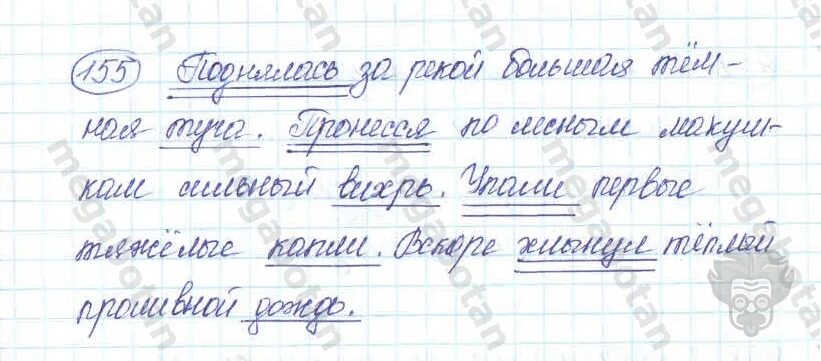 155 Поднялась за рекой большая тём-
ная туча. Пронесся по лесным макуш-
кам сильный вихрь. Упали первые
тяжёлые капли. Вскоре хлынул тёплый
проливной дождь.
megabotan